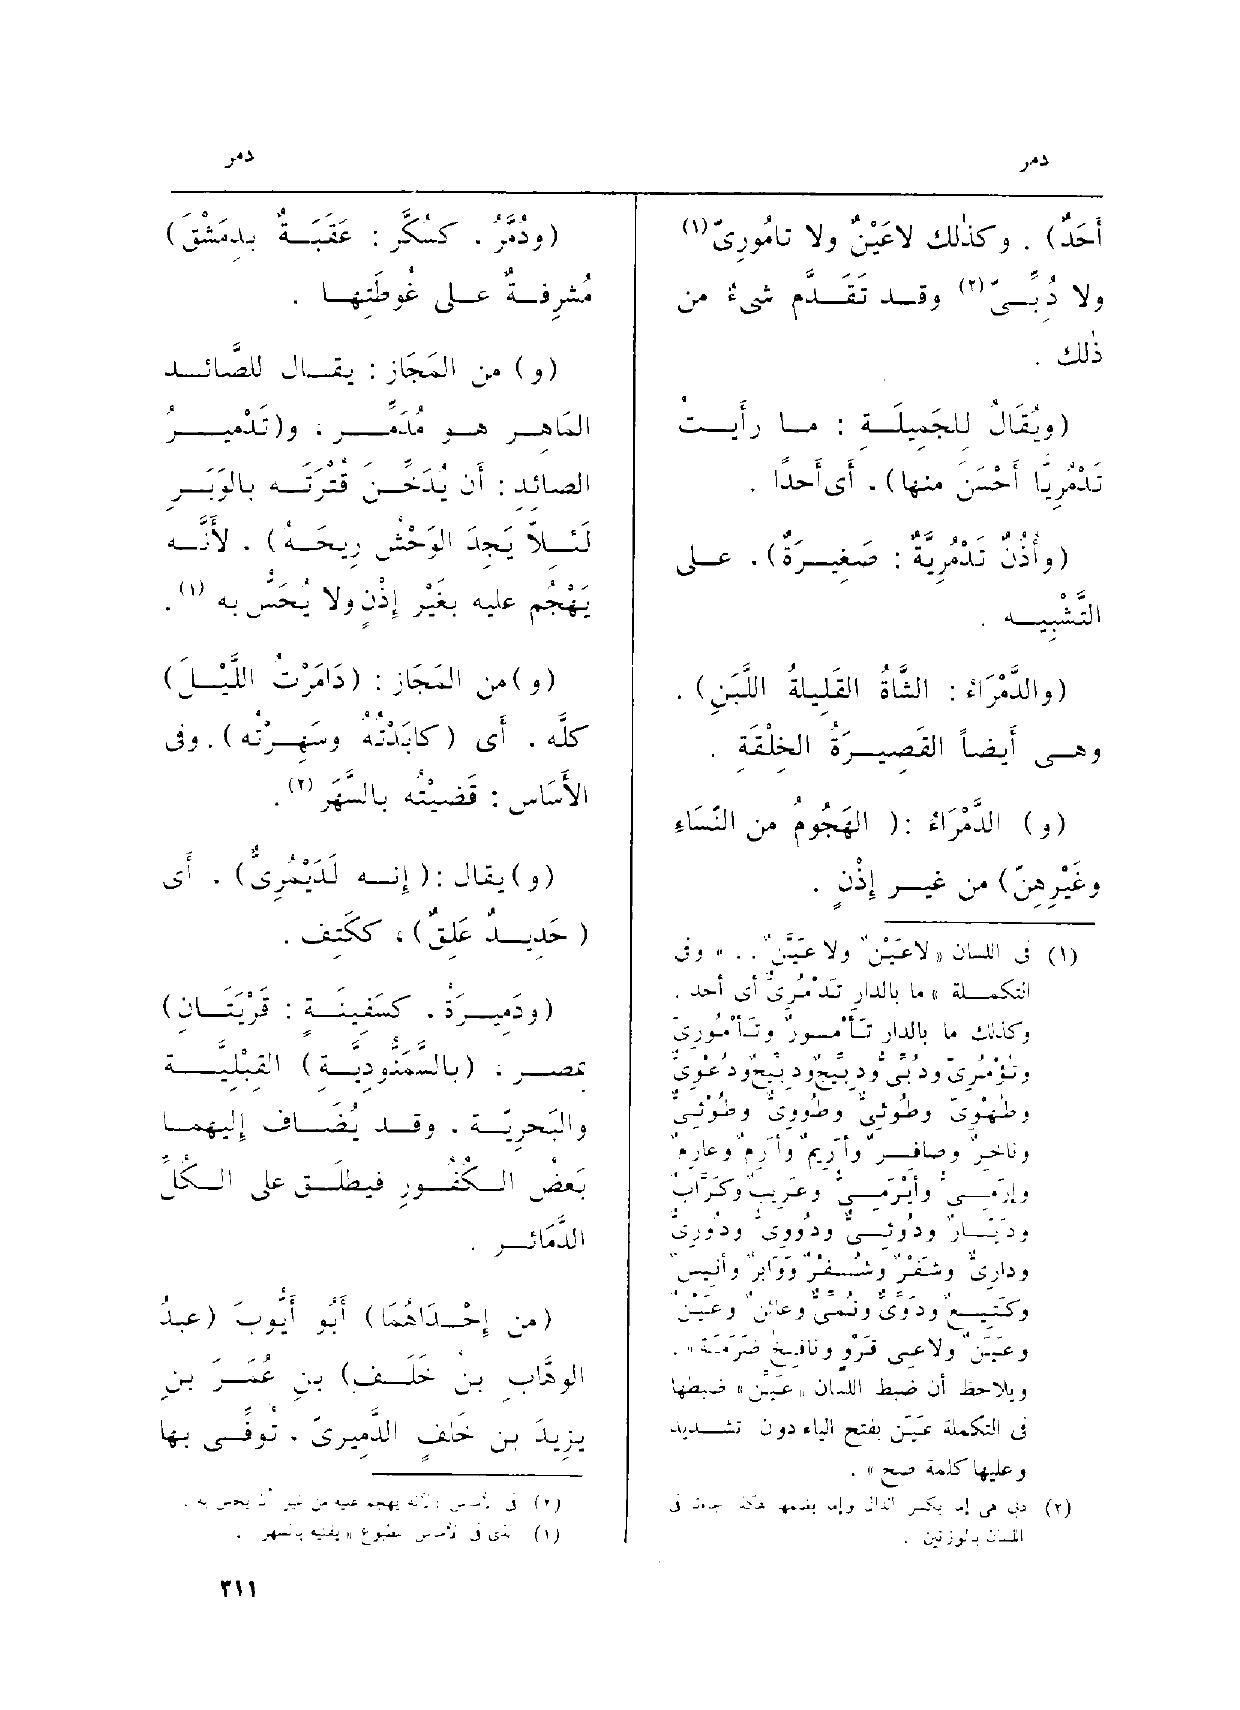 دمر
دمر
أَحَدٌ) . وكذلك لاعَيْنٌ ولا تامُورِىّ (١)
ولا دُبِّىّ (٢) وقد تَقَدَّم شىءٌ من
ذلك .
(ويُقَالُ للجَمِيلَة : ما رأَيتُ
تَدْمُرِيًّا أَحْسَنَ منها) . أَى أَحدًا .
(وأُذُنٌ تَدْمُرِيَّةٌ : صَغِيرَةٌ) . على
التَّشْبِيه .
(والدَّمْرَاءُ : الشَّاةُ القَلِيلةُ اللَّبَنِ) .
وهى أَيضاً القَصِيرَةُ الخِلْقَةِ .
(و) الدَّمْرَاءُ :( الهَجُومُ من النِّسَاءِ
وغَيْرِهِنّ) من غير إِذْنٍ .
(١) فى اللسان «لاعَيْنٌ ولا عَيَّنٌ . . » وفى
التكملة « ما بالدار تَدْمُرِىٌّ أى أحد .
وكذلك ما بالدار تَأْمورٌ وتَأْمُورِىّ
وتُؤْمُرِىّ ودُبِّىّ ودِبِّيجٌ ودِبِّيحٌ ودُعْوِىٌّ
وطُهْوِىّ وطُوئِىٌّ وطُووِىّ وطُؤْئِىٌّ
وناخرٌ وصافرٌ وأَرِيمٌ وأَرِمٌ وعارِمٌ
وإِرَمِىٌّ وأَيْرَمِىٌّ وعَرِيبٌ وكَرَّابٌ
ودَيَّارٌ ودُوئِىٌّ ودُووِىٌّ ودُورِىٌّ
ودارِىٌّ وشَفْرٌ وشُفْرٌ ووَابِرٌ وأَنِيسٌ
وكَتِيعٌ ودَوِّىّ ونُمِّىٌّ وعائنٌ وعَيْنٌ
وعَيَنٌ ولاعِى قَرْوٍ ونافِخُ ضَرَمَة» .
ويلاحظ أن ضبط اللسان «عَيَّن» ضبطها
فى التكملة عَيَن بفتح الياء دون تشديد
وعليها كلمة صح» .
(٢) دبى هى إما بكسر الدال وإما بضمها هكذا جاءت فى
اللسان بالوزنين .
(ودُمَّرُ . كسُكَّرٍ : عَقَبَةٌ بِدِمَشْقَ)
مُشرِفةٌ على غُوطَتِها .
(و) من المَجَازِ : يقال للصَّائد
الماهِرِ هو مُدَمِّر ، و(تَدْمِيرُ
الصائدِ : أَن يُدَخِّنَ قُتْرَتَه بالوَبَرِ
لَئِلاَّ يَجِدَ الوَحْشُ رِيحَهُ) . لأَنَّه
يَهْجُم عليه بغَيْر إِذْنٍ ولا يُحَسّ به (١) .
(و) من المَجَازِ : (دَامَرْتُ اللَّيْلَ)
كلَّه . أَى (كابَدْتُهُ وسَهِرْتُه) . وفى
الأَساس : قَضيْتُه بالسَّهَر (٢) .
(و) يقال :( إِنه لَدَيْمُرِىٌّ) . أَى
( حَدِيدٌ عَلِقٌ) ، ككَتِف .
(ودَمِيرَةُ . كسَفِينَةٍ : قَرْيَتَان)
بمصر ، (بالسَّمَنُّودِيَّةِ) القِبْلِيَّة
والبَحرِيّة . وقد يُضَاف إِليهما
بَعضُ الكُفُورِ فيطلَق على الكُلِّ
الدَّمَائر .
(من إِحْدَاهُما) أَبُو أَيُّوبَ (عبدُ
الوهَّاب بن خَلَف) بنِ عُمَرَ بنِ
يزِيدَ بن خَلَفٍ الدَّمِيرِىّ . تُوفِّى بها
(٢) فى الأساس : لأنه يهجم عليه من غير أن يحس به .
(١) الذى فى الأساس المطبوع « يفنيه بالسهر .
٣١١